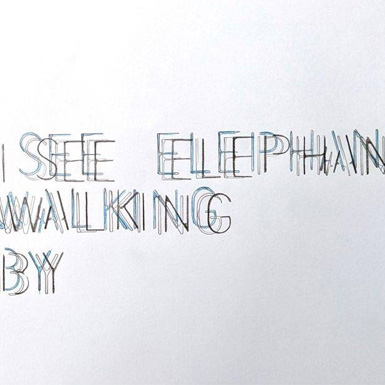 I SEE ELEPHAN
WALKING
BY